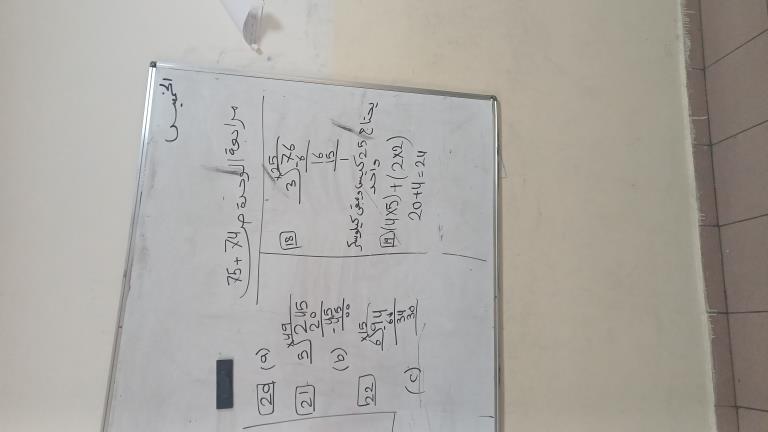 الخميس
مراجعة الوحدة ص 74 + 75
18
×25
3 76
-6
16
15
1
يحتاج 25 كيس ويبقى كيلو
واحد
19 (4×5) + (2×2)
20+4=24
20 (a)
21
×49
5 245
20
-45
45
00
(b)
22
×15
6 94
64
34
30
(c)